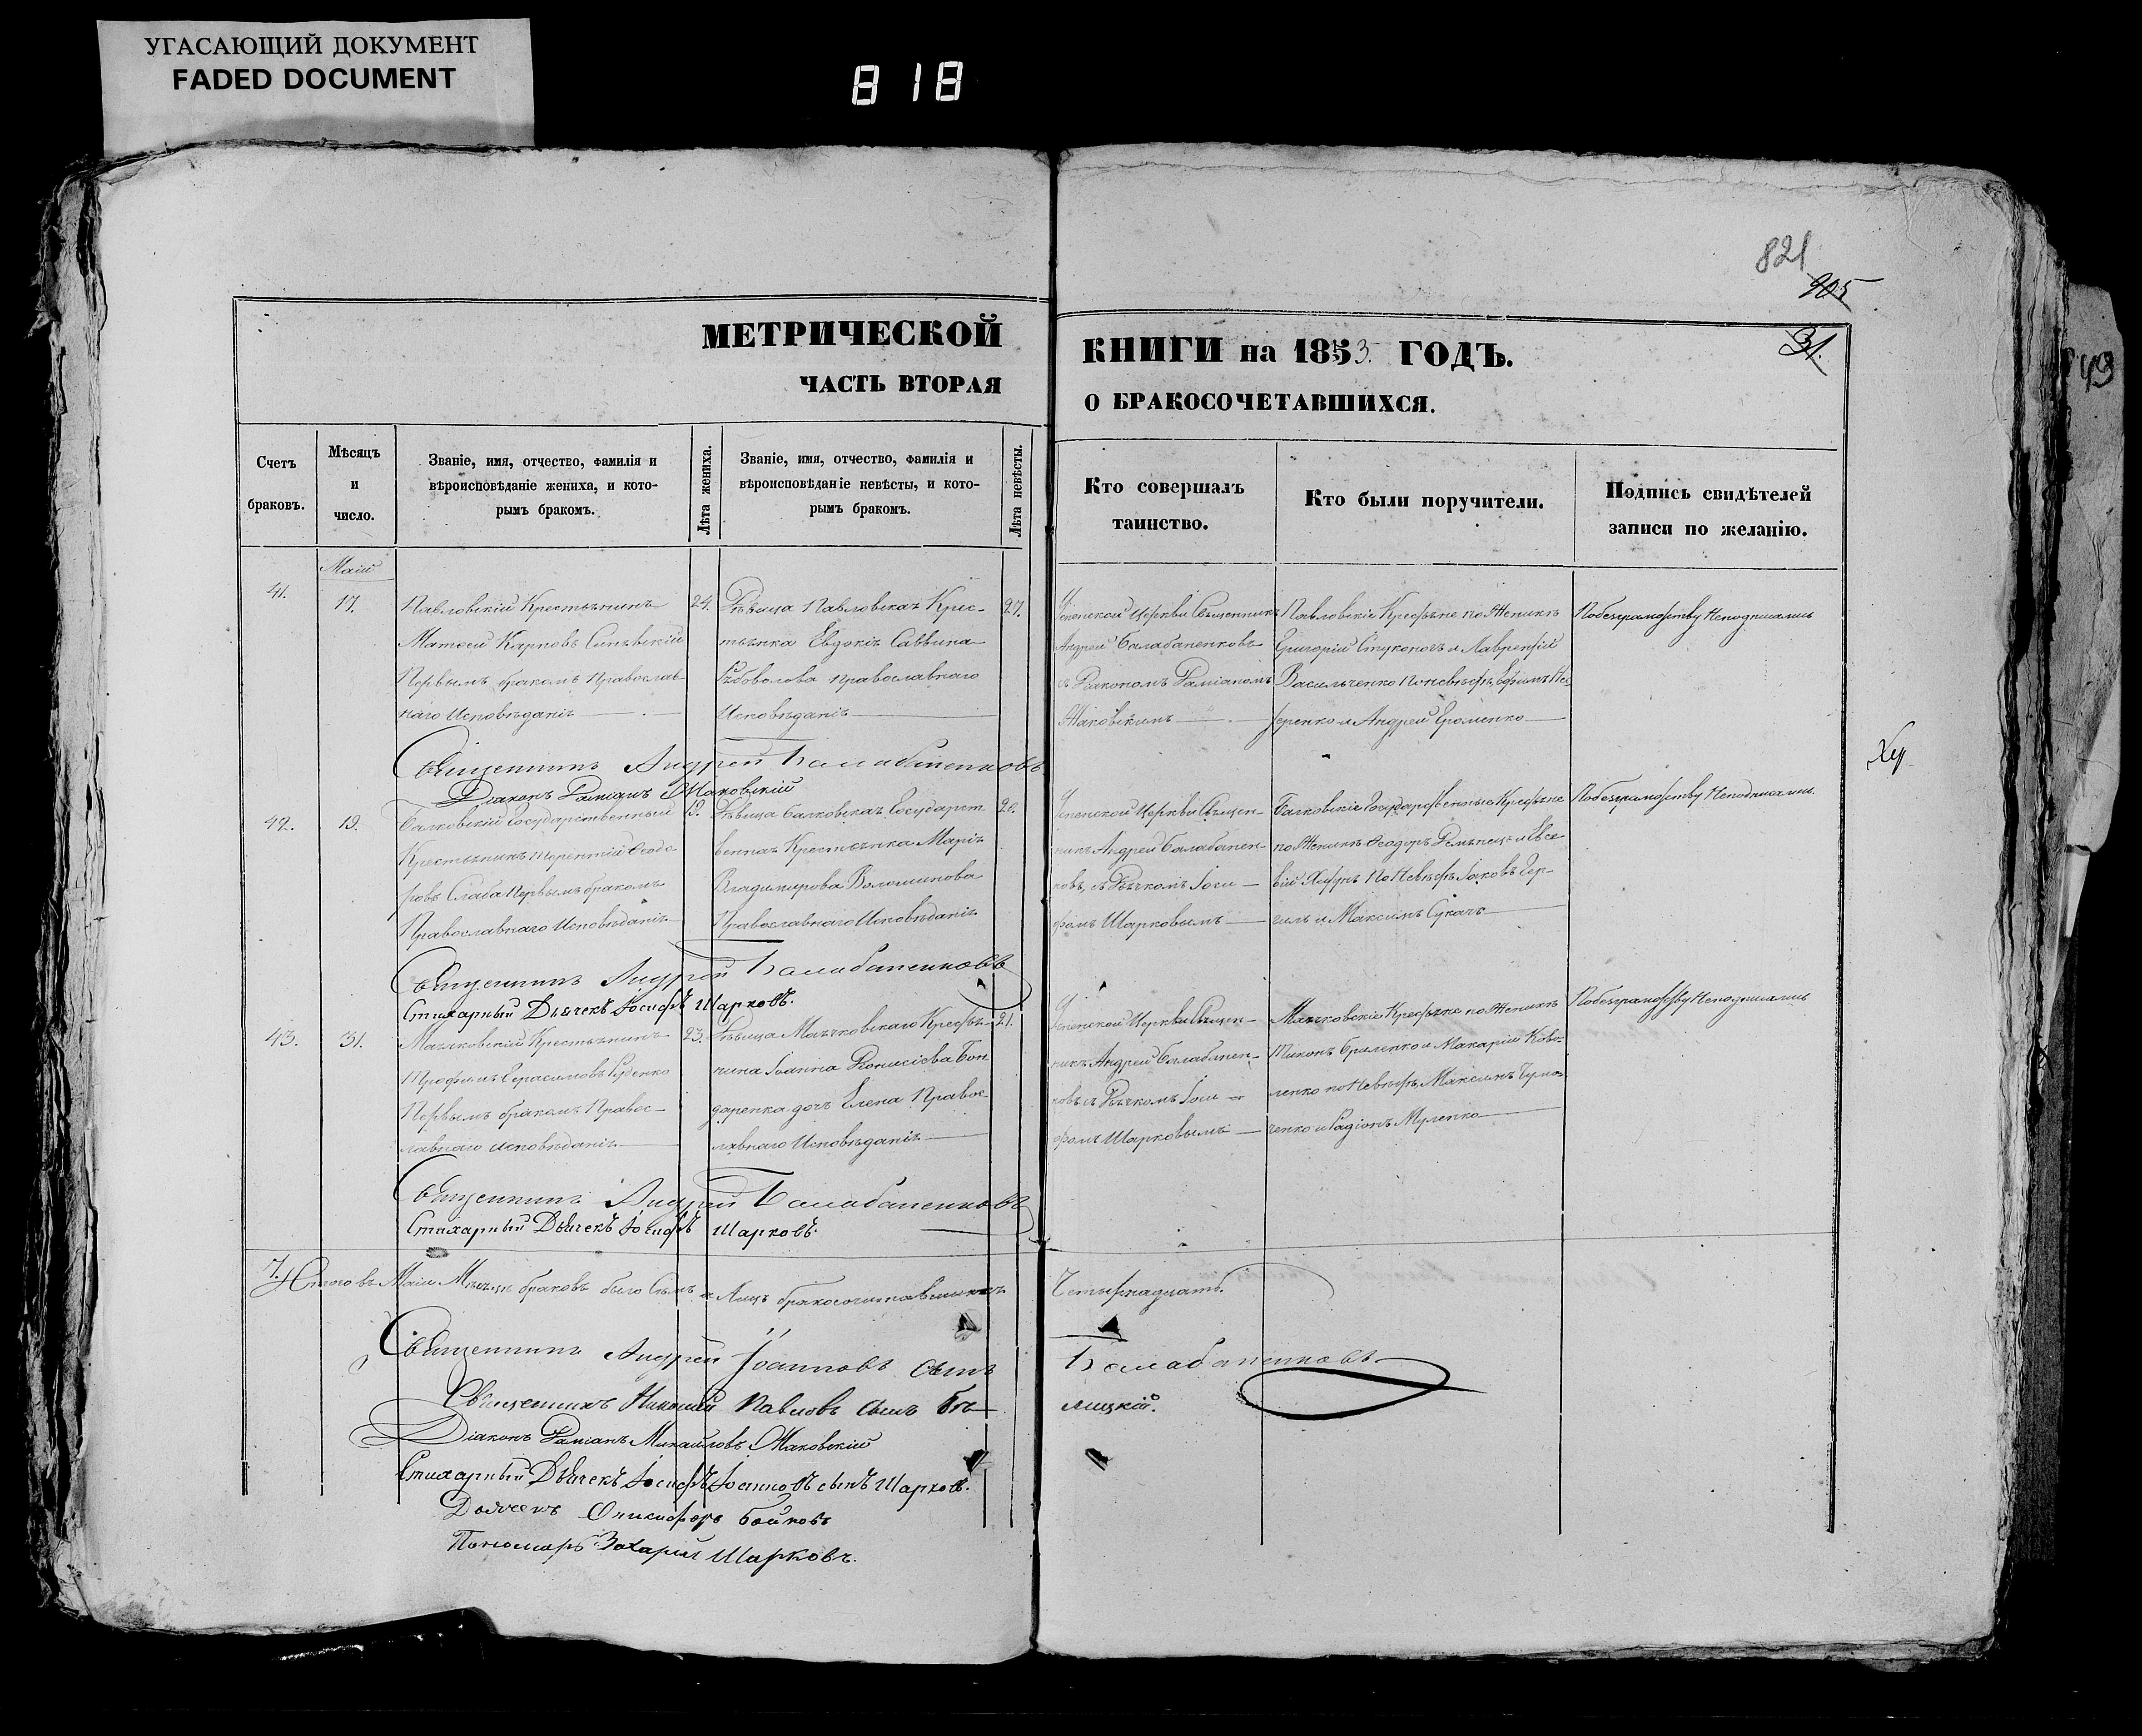 УГАСАЮЩИЙ ДОКУМЕНТ
FADED DOCUMENT
818
821
905
31.
МЕТРИЧЕСКОЙ
ЧАСТЬ ВТОРАЯ
КНИГИ на 1853. ГОДЪ.
О БРАКОСОЧЕТАВШИХСЯ.
Счетъ
браковъ.
Мѣсяцъ
и
число.
Званіе, имя, отчество, фамилія и
вѣроисповѣданіе жениха, и кото-
рымъ бракомъ.
Лѣта жениха.
Званіе, имя, отчество, фамилія и
вѣроисповѣданіе невѣсты, и кото-
рымъ бракомъ.
Лѣта невѣсты.
Кто совершалъ
таинство.
Кто были поручители.
Подпись свидѣтелей
записи по желанію.
Маій
41.
17.
Павловскій Крестьянинъ
Матѳей Карповъ
Первымъ бракомъ Православ-
наго Исповѣданія
24.
Дѣвица Павловская Крес-
тьянка Евдокія Саввина
Рыбовалова православнаго
Исповѣданія
27.
Успенской Церкви Священникъ
Андрей Балабаненковъ
съ Діакономъ Даміаномъ
Жаковскимъ
Павловскіе Крестьяне по Женихѣ
Григорій Стукопогъ и Лаврентій
Васильченко По невѣстѣ, Ефимъ Не-
теренко и Андрей Ероменко
По безграмотству Неподписались
Священникъ Андрей Балабаненковъ
Діаконъ Даміанъ Жаковскій
42.
19.
Балковскій Государственный
Крестьянинъ Терентій Ѳеодо-
ровъ Слаба Первымъ бракомъ
Православнаго Исповѣданія
19.
Дѣвица Балковская Государст
венная Крестьянка Марія
Владимирова Волошинова
Православнаго Исповѣданія
20.
Успенской Церкви Священ-
никъ Андрей Балабанен-
ковъ, съ Дьячкомъ Іоси-
фомъ Шарковымъ
Балковскіе Государственные Крестьяне
по Женихѣ Ѳеодоръ Ремѣнецъ и Евсе
вій По Невѣстѣ Іаковъ Гор-
гиль и Максимъ Сукачъ
По безграмотству Неподписались
Священникъ Андрей Балабаненковъ
Стихарный Дьячекъ Іосифъ Шарковъ.
43.
31.
Маячковскій Крестьянинъ
Трофимъ Герасимовъ Руденко
Первымъ бракомъ Правос-
лавнаго исповѣданія
23.
Дѣвица Маячковскаго Крестья-
нина Іоанна Діонисіева Бон
даренка дочь Елена Правос
лавнаго Исповѣданія
21.
Успенской Церкви Священ-
никъ Андрей Балабанен-
ковъ съ Дьячкомъ Іоси-
фомъ Шарковымъ
Маячковскіе Крестьяне по Женихѣ
Тихонъ Бриленко и Макарій Кова-
ленко по Невѣстѣ, Максимъ Гума-
ченко и Радіонъ Муленко
По безграмотству Неподписались
Священникъ Андрей Балабаненковъ
Стихарный Дьячекъ Іосифъ Шарковъ.
7.
Итого въ Маіи Мѣсяцѣ браковъ было Семь а Лицъ бракосочитавшихся
Четырнадцать.
Священникъ Андрей Іоанновъ сынъ
Балабаненковъ
Священникъ Николай Павловъ сынъ Бѣ-
лицкій.
Діаконъ Даміанъ Михайловъ Жаковскій
Стихарный Дьячекъ Іосифъ Іоанновъ сынъ Шарковъ.
Дьячекъ Онисифоръ Бойковъ
Пономарь Захарій Шарковъ.